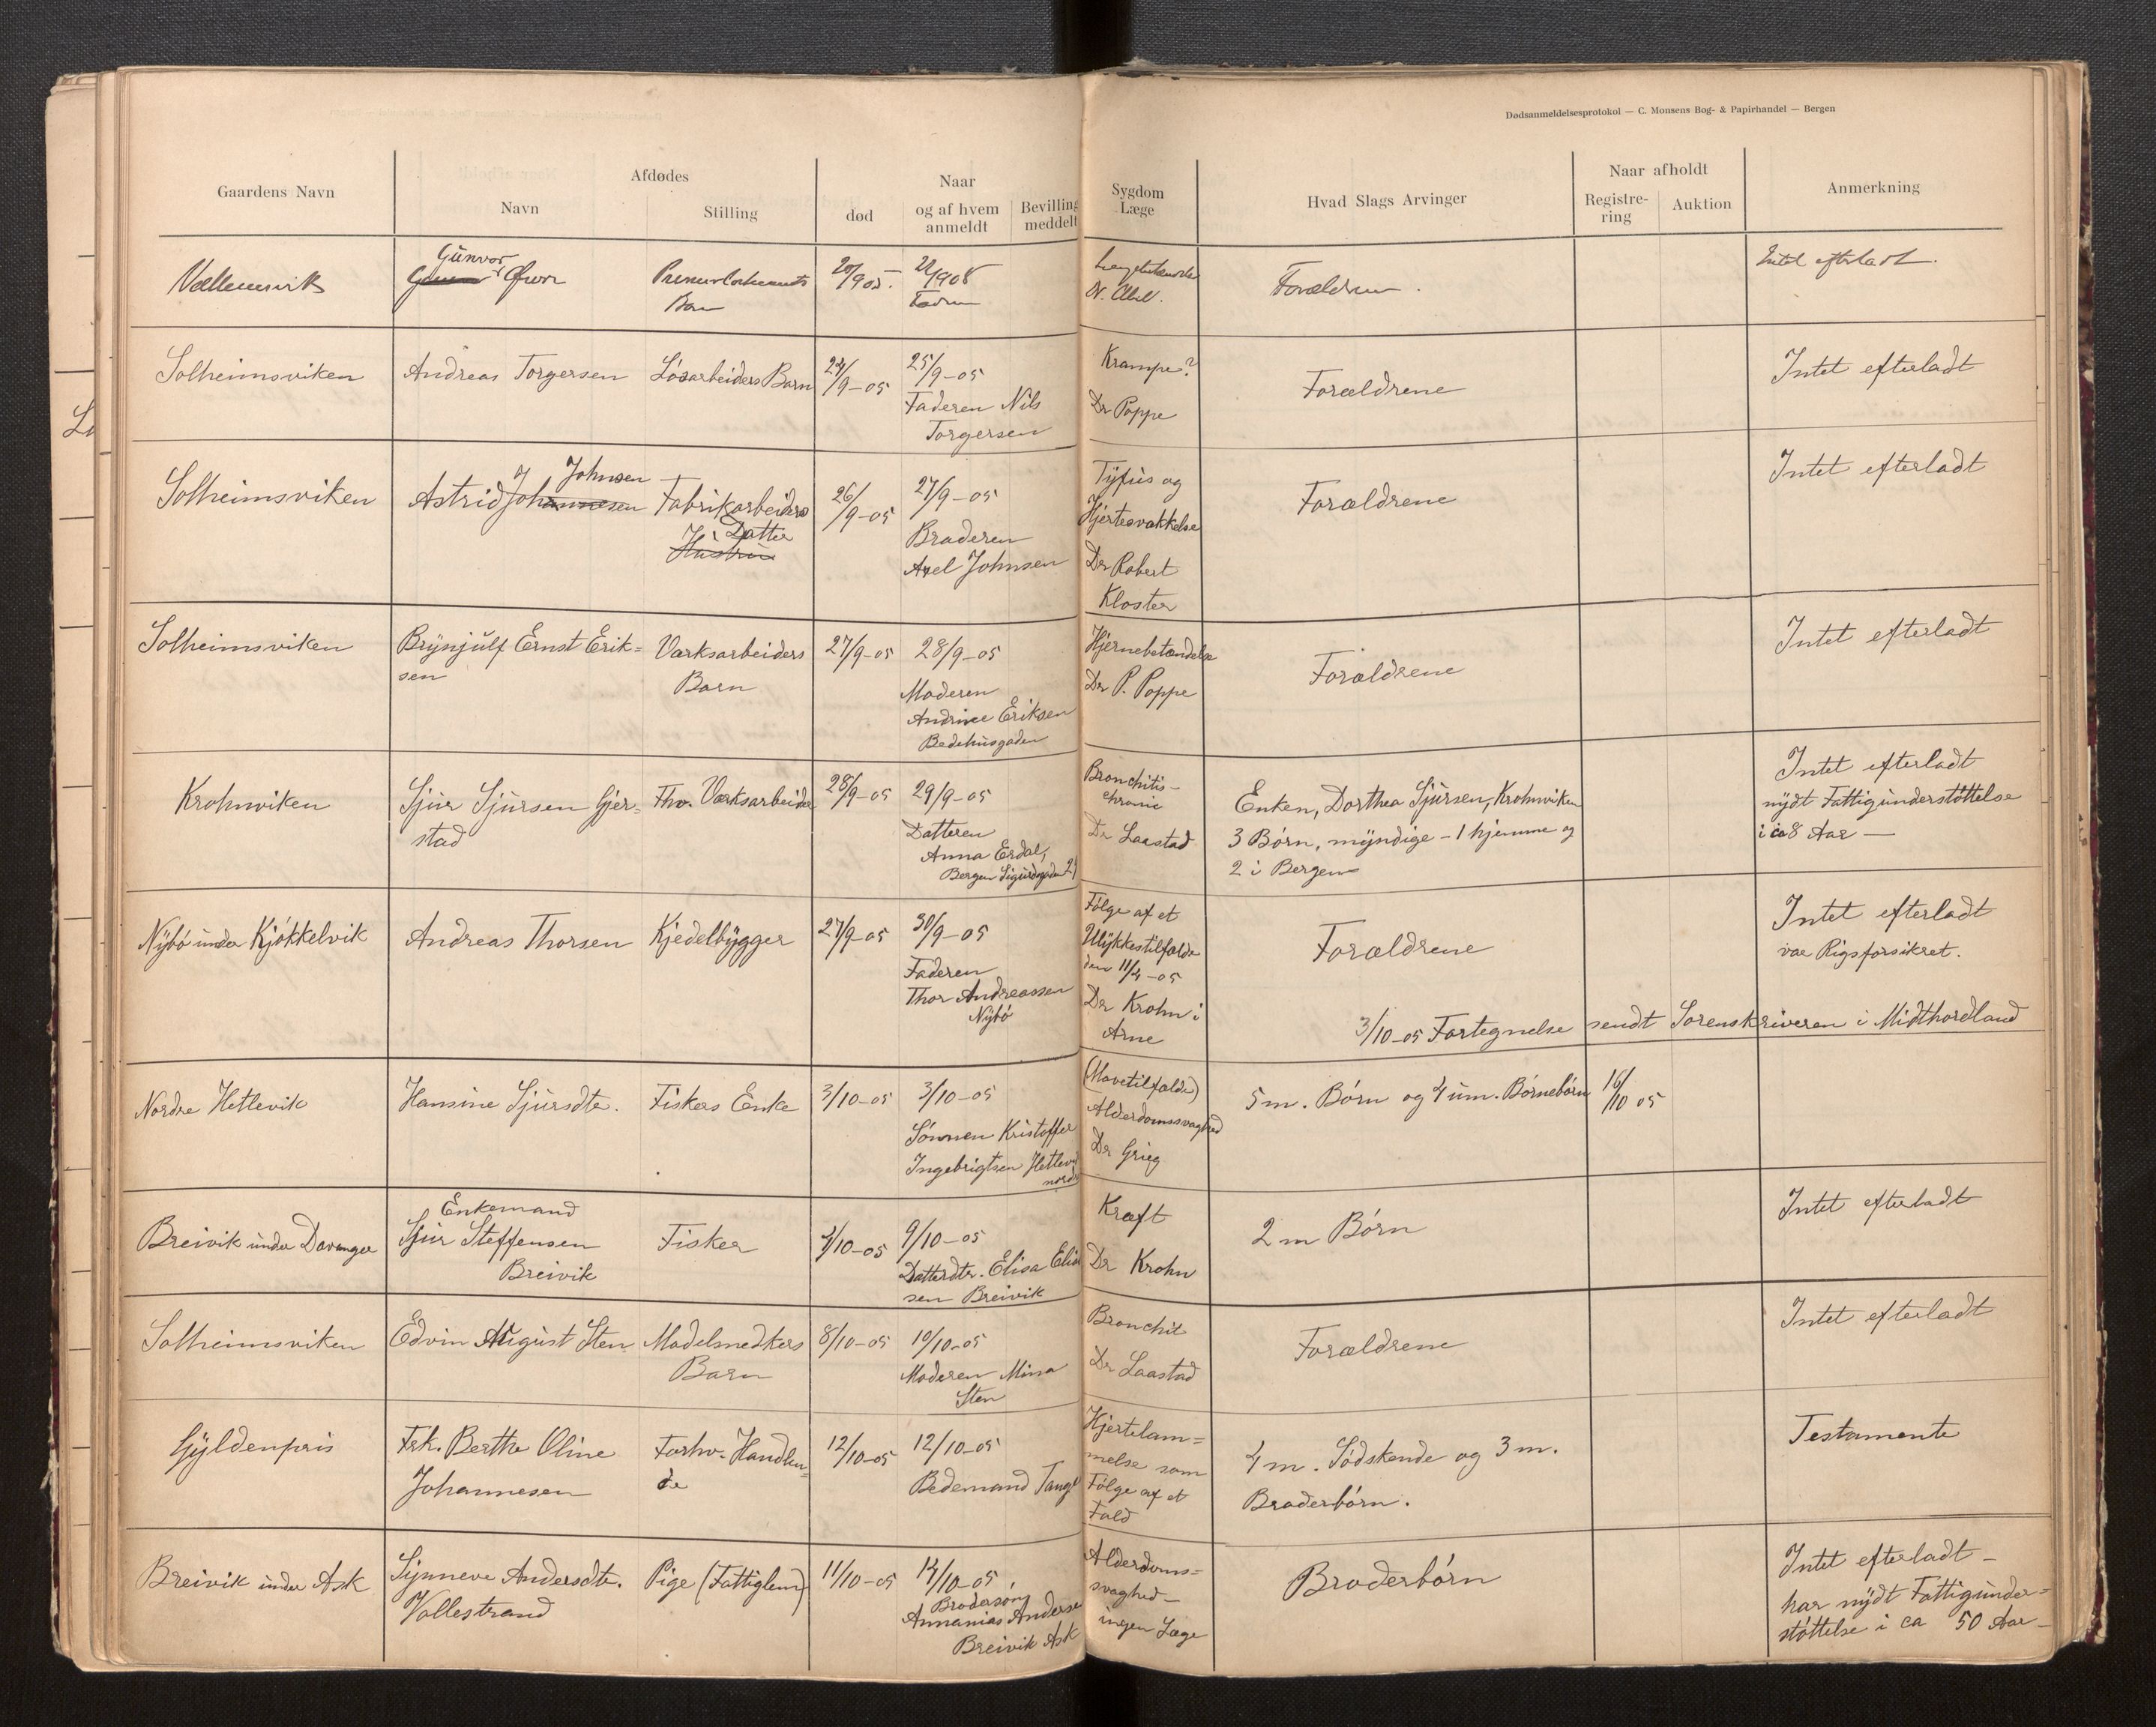 Dødsanmeldelsesprotokol — C. Monsens Bog- & Papirhandel — Bergen
Gaardens Navn
Afdødes
Navn
Stilling
død
Naar
og af hvem
anmeldt
Bevilling
meddelt
Sygdom
Læge
Hvad Slags Arvinger
Naar afholdt
Registre-
ring
Auktion
Anmerkning
Gunvor
Barn
20/9 05.
Forældrene.
Intet efterladt.
Solheimsviken
Andreas Torgersen
Løsarbeiders Barn
24/9-05
25/9-05
Faderen Nils
Torgersen
Krampe?
Dr Poppe
Forældrene
Intet efterladt
Solheimsviken
Johnsen
Astrid Johannesen
Fabrikarbeiders
Datter
Hustru
26/9-05
27/9-05
Broderen
Axel Johnsen
Tyfus og
Hjertesvækkelse
Dr Robert
Kloster
Forældrene
Intet efterladt
Solheimsviken
Brynjulf Ernst Erik=
sen
Værksarbeiders
Barn
27/9-05
28/9-05
Moderen
Andrine Eriksen
Bedehusgaden
Hjernebetændelse
Dr P. Poppe
Forældrene
Intet efterladt
Krohnviken
Sjur Sjursen Gjer=
stad
Fhv. Værksarbeider
28/9-05
29/9-05
Datteren
Anna Erdal,
Bergen Sigurdsgaden 21
Bronchitis-
chronic
Dr Laastad
Enken, Dorthea Sjursen, Krohnviken
3 Børn, myndige - 1 hjemme og
2 i Bergen
Intet efterladt
nydt Fattigunderstøttelse
i ca 8 Aar —
Nybø under Kjøkkelvik
Andreas Thorsen
Kjedelbygger
27/9-05
30/9-05
Faderen
Thor Andreassen
Nybø
Følge af et
Ulykkestilfælde
den 11/4-05
Dr Krohn i
Arne
Forældrene
Intet efterladt
var Rigsforsikret.
3/10-05 Fortegnelse sendt Sorenskriveren i Midthordland
Nordre Hetlevik
Hansine Sjursdtr.
Fiskers Enke
3/10-05
3/10-05
Sønnen Kristoffer
Ingebrigtsen Hetlevik
nordre
Alderdomssvaghed
Dr Grieg
5 m. Børn og 4 um. Børnebørn
16/10 05
Breivik under Davanger
Enkemand
Sjur Steffensen
Breivik
Fisker
9/10-05
Datterdtr. Elisa Elia
sen Breivik
Kræft
Dr Krohn
2 m Børn
Intet efterladt
Solheimsviken
Edvin August Sten
Modelsnedkers
Barn
8/10-05
10/10-05
Moderen Mina
Sten
Bronchit
Dr Laastad
Forældrene
Intet efterladt
Gyldenpris
Frk. Berthe Oline
Johannesen
Forhv. Handlen=
de
12/10-05
12/10-05
Bedemand Tange
Hjertelam=
melse som
Følge af et
Fald
4 m. Sødskende og 3 m.
Broderbørn.
Testamente
Breivik under Ask
Synneve Andersdtr.
Vollestrand
Pige (Fattiglem)
11/10-05
14/10-05
Brodersøn
Annanias Anderse
Breivik Ask
Alderdoms=
svaghed-
ingen Læge
Broderbørn
Intet efterladt -
har nydt Fattigunder=
støttelse i ca 50 Aar -